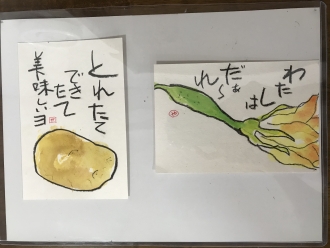 とれたて
できたて
美味いヨ
わた
しは
だぁ
れ〜